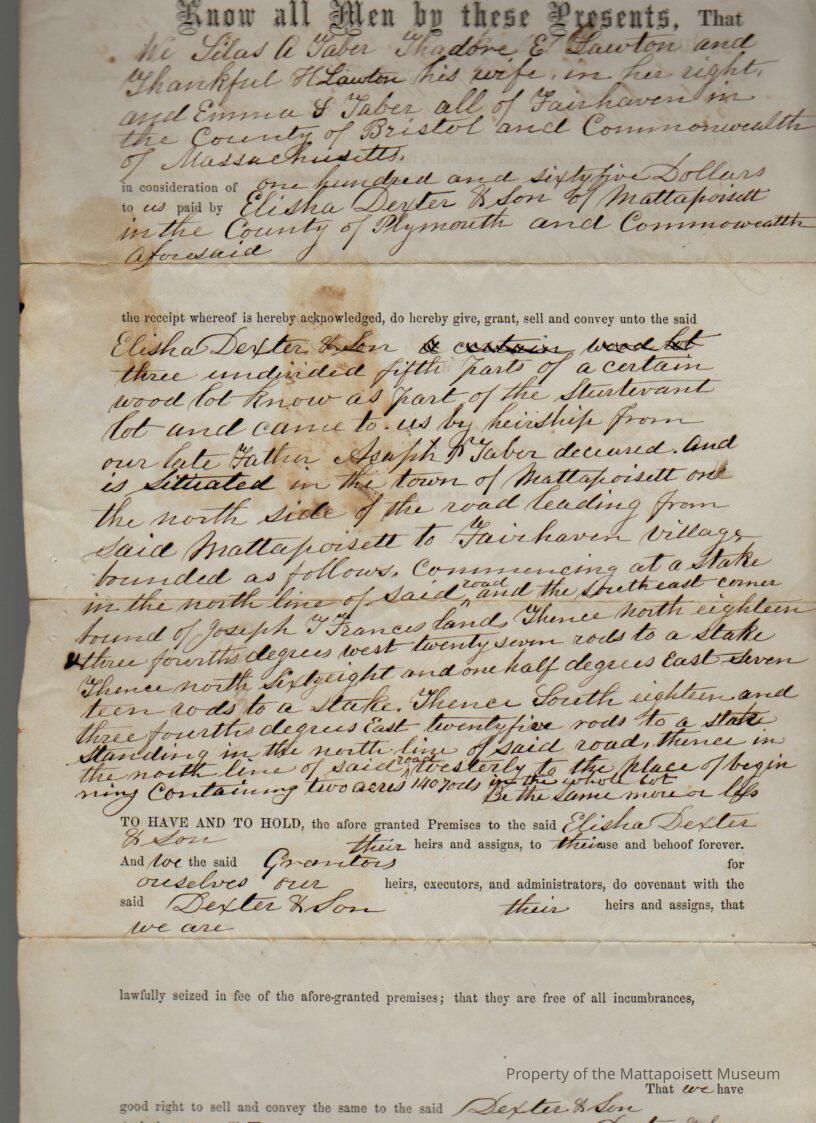 Know all Men by these Presents, That
We Silas A Taber Thadore E. Lawton and
Thankful H Lawton his wife, in her right,
and Emma S Taber all of Fairhaven in
the County of Bristol and Commonwealth
of Massachusetts.
in consideration of one hundred and sixtyfive Dollars
to us paid by Elisha Dexter & Son of Mattapoisett
in the County of Plymouth and Commowealth
aforesaid
the receipt whereof is hereby acknowledged, do hereby give, grant, sell and convey unto the said
Elisha Dexter & Son a certain wood lot
three undivided fifth parts of a certain
wood lot know as part of the Sturtevant
lot and came to us by heirship from
our late Father Asaph Taber deceased. And
is Situated in the town of Mattapoisett on
the north side of the road leading from
said Mattapoisett to Fairhaven village
bounded as follows. Commencing at a Stake
in the north line of said road and the southeast corner
bound of Joseph T Francis land, Thence north eighteen
three fourths degrees west twenty seven rods to a Stake
Thence north Sixtyeight and one half degrees East Seven
teen rods to a Stake. Thence South eighteen and
three fourths degrees East twentyfive rods to a stake
Standing in the north line of said road, thence in
the north line of said road Westerly to the place of begin
ning Containing two acres 140 rods in the whole lot
Be the same more or less
TO HAVE AND TO HOLD, the afore granted Premises to the said Elisha Dexter
& Son their heirs and assigns, to their use and behoof forever.
And We the said Grantors for
ourselves our heirs, executors, and administrators, do covenant with the
said Dexter & Son their heirs and assigns, that
we are
lawfully seized in fee of the afore-granted premises; that they are free of all incumbrances,
Property of the Mattapoisett Museum
That we have
good right to sell and convey the same to the said Dexter & Son